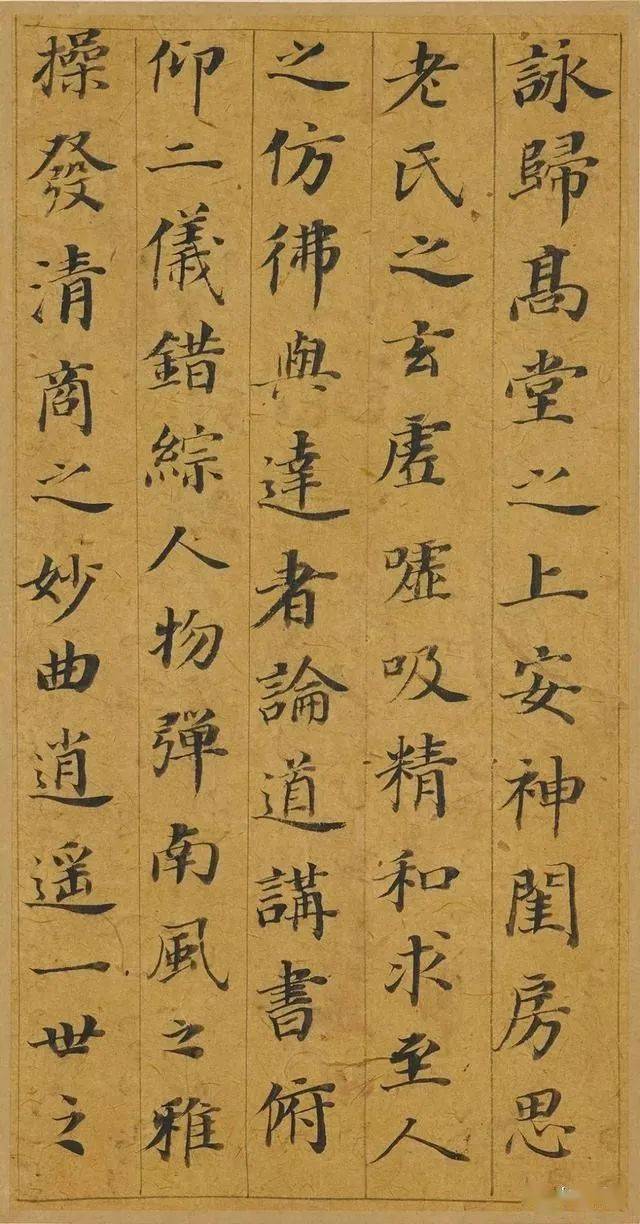 詠歸髙堂之上安神閨房思
老氏之玄虛嘘吸精和求至人
之仿彿與達者論道講書俯
仰二儀錯綜人物彈南風之雅
操發清商之妙曲逍遥一世之